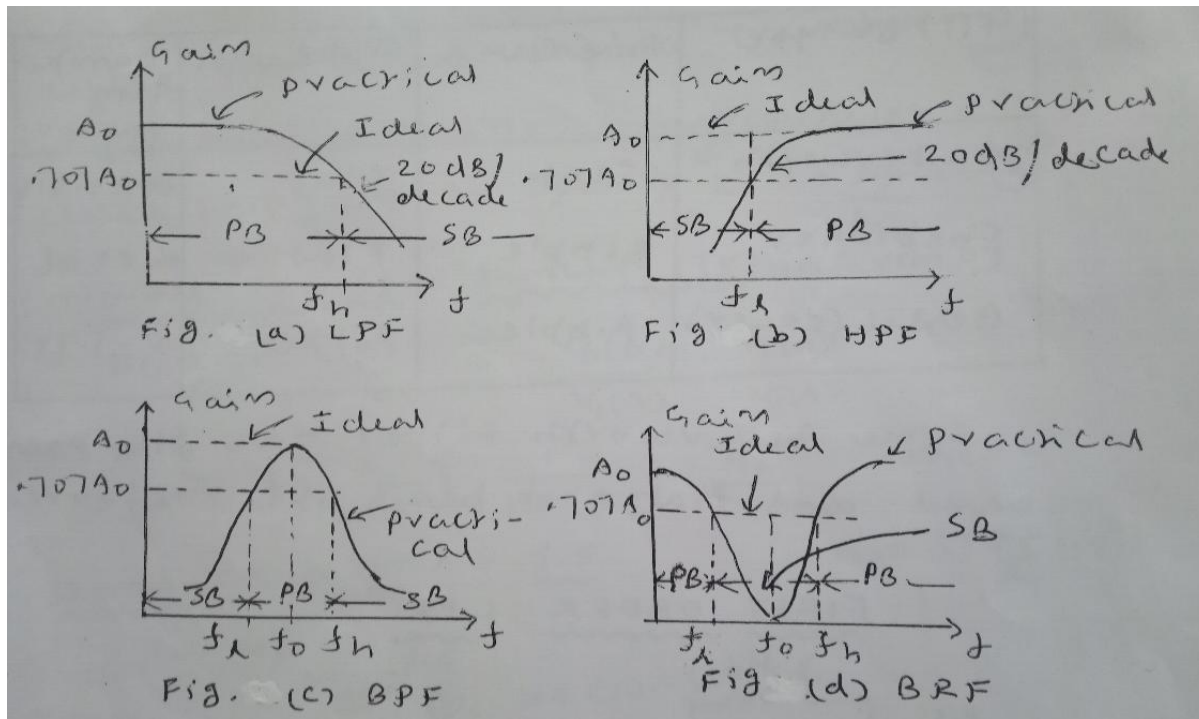 Gain
Practical
A₀
Ideal
.707A₀
20dB/
decade
PB
SB
fh
f
Fig. (a) LPF
Gain
Ideal
Practical
A₀
20dB/decade
.707A₀
SB
PB
fl
f
Fig. (b) HPF
Gain
Ideal
A₀
.707A₀
practi-
cal
SB
PB
SB
fl
f₀
fh
f
Fig. (c) BPF
Gain
Ideal
Practical
A₀
.707A₀
SB
PB
PB
fl
f₀
fh
f
Fig. (d) BRF